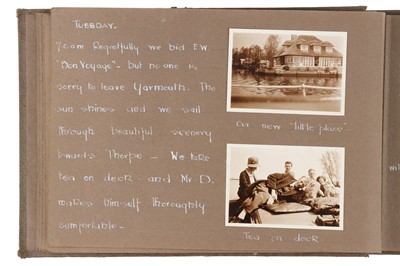 TUESDAY.
7.0am Regretfully we bid E.W.
"Bon Voyage" - but no one is
sorry to leave Yarmouth. The
sun shines and we sail
through beautiful scenery
towards Thorpe - We take
tea on deck and Mr D.
makes himself thoroughly
comfortable -
Our new "little place"
Tea on deck